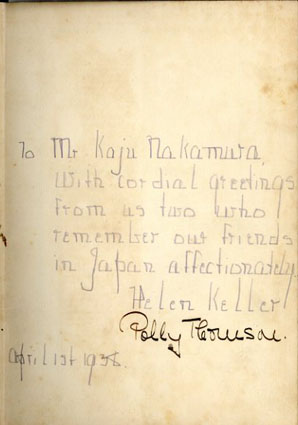 To Mr. Kaju Nakamura,
With cordial greetings
from us two who
remember our friends
in Japan affectionately.
Helen Keller
Polly Thomson.
April 1st 1938.